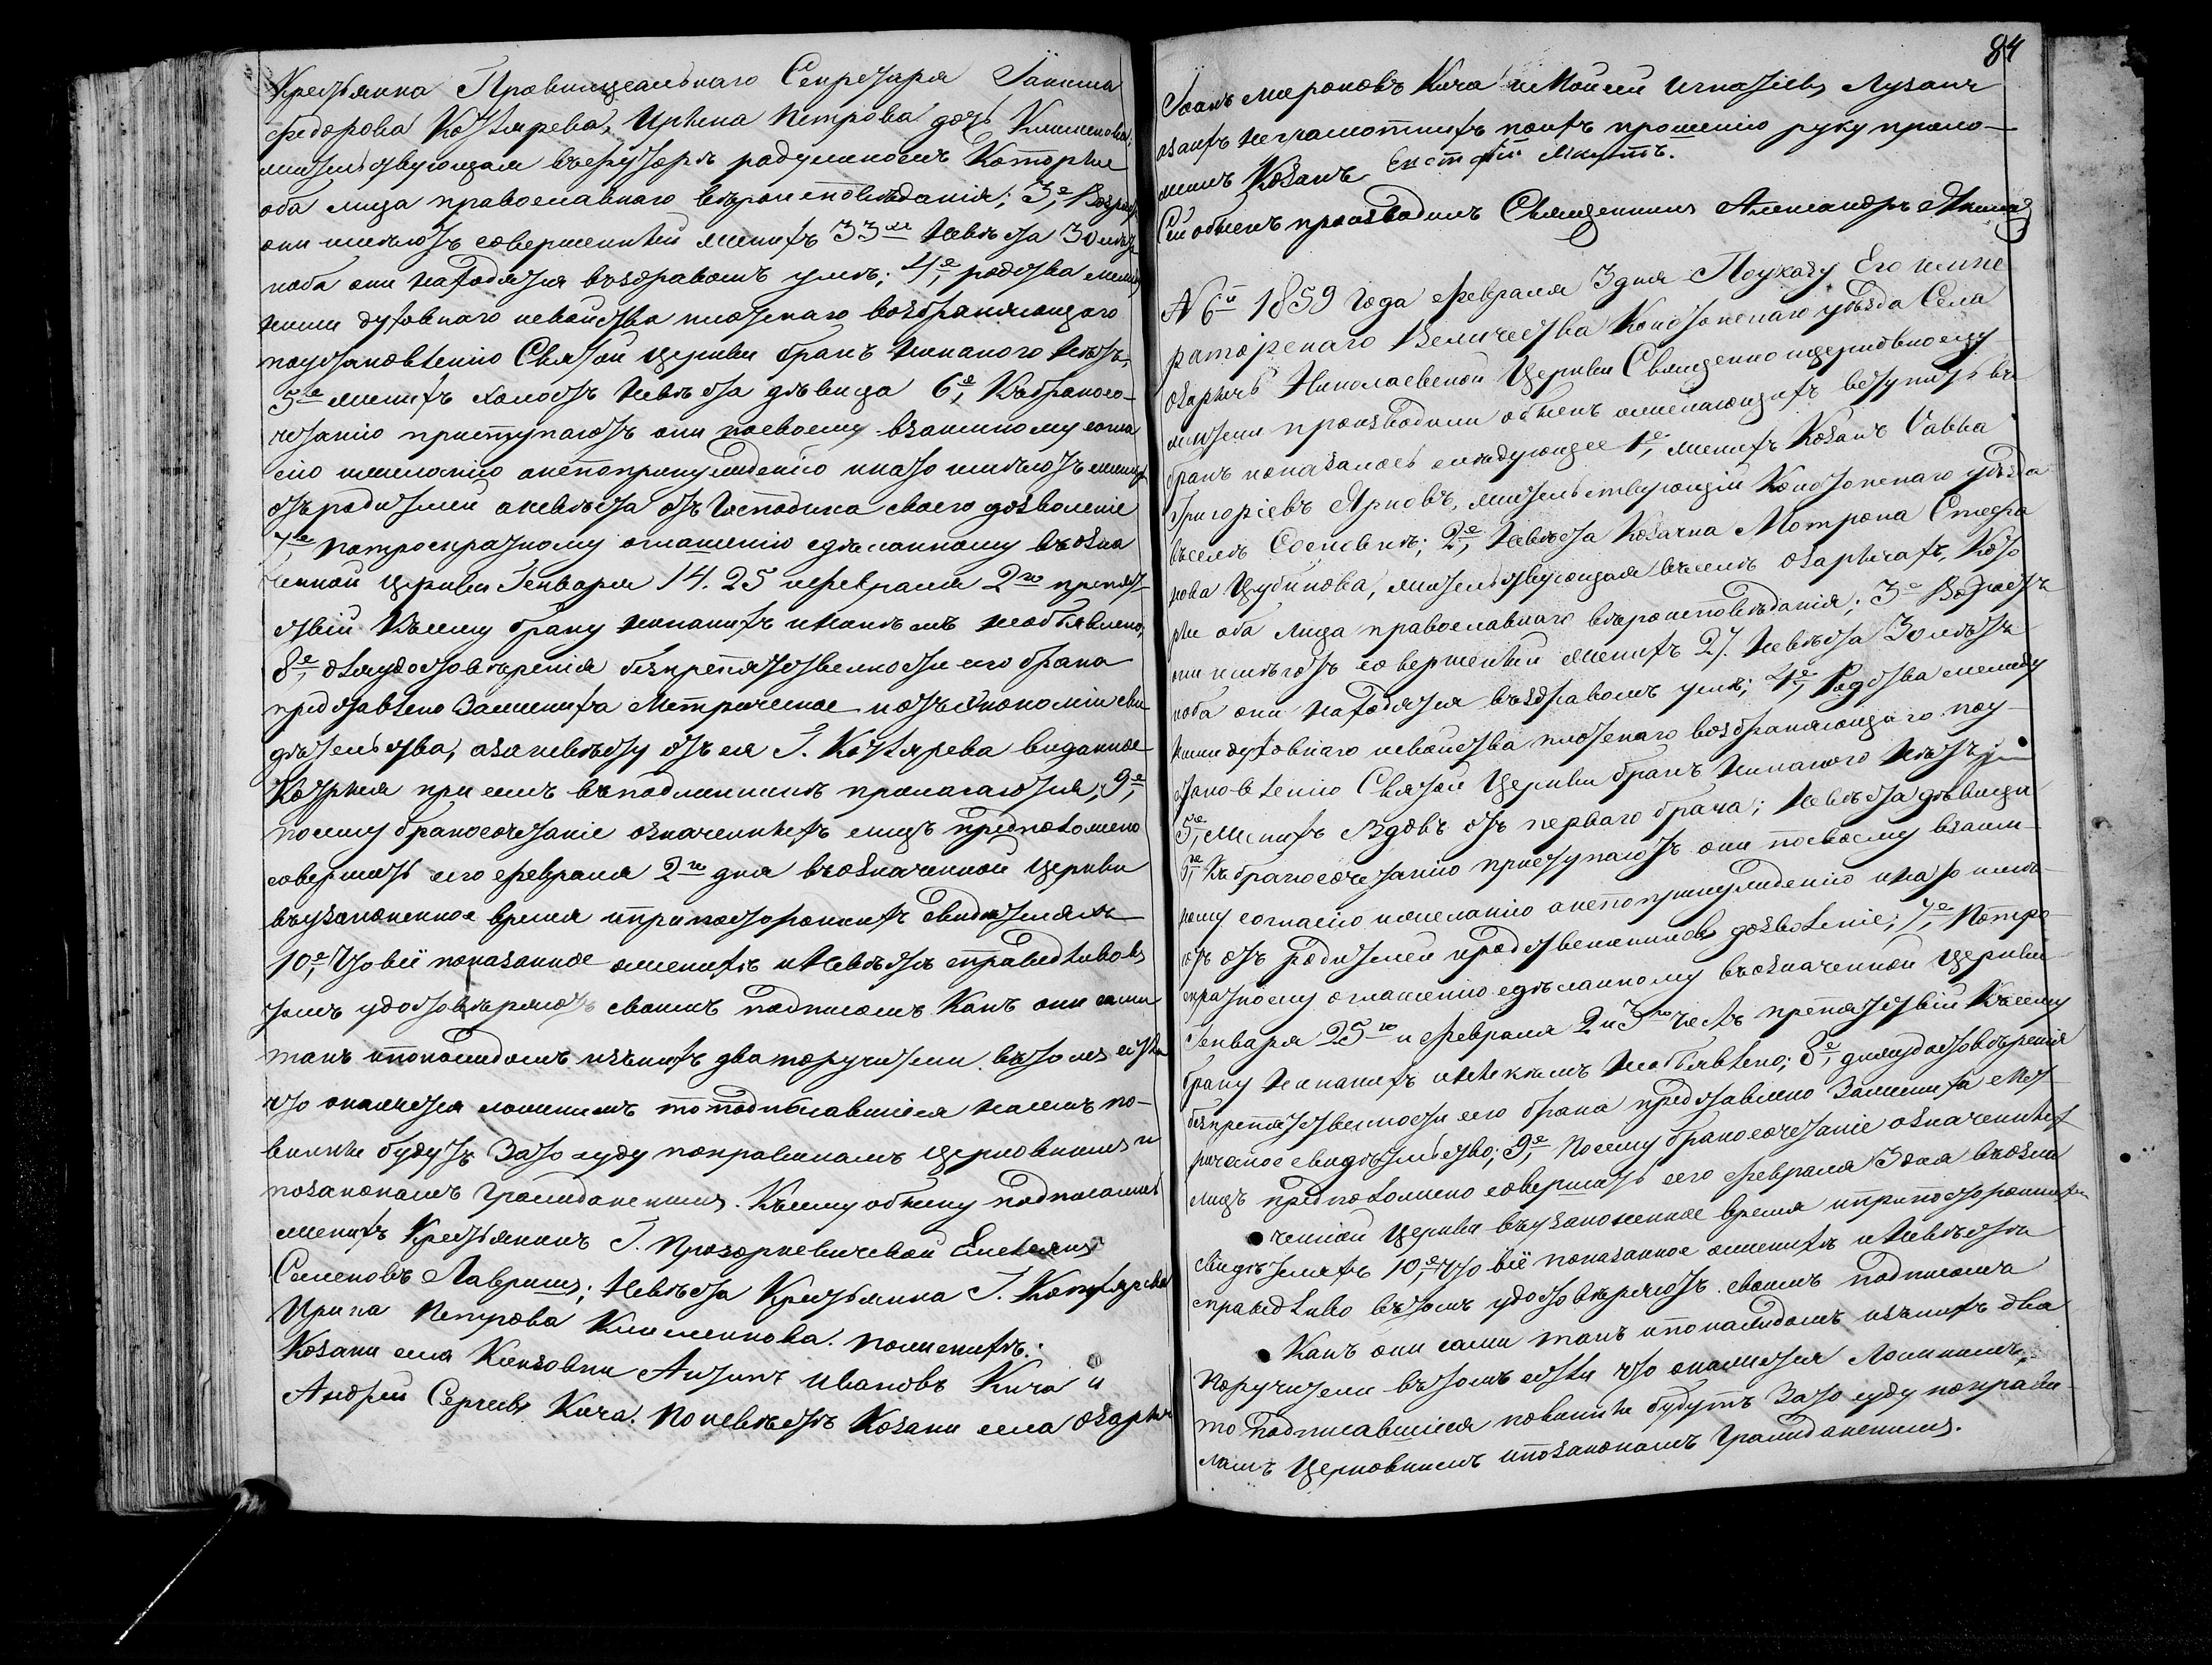 Крестьянка Провинцеальнаго Секретаря Іакима
Федорова Костырева, Ирына Петрова дочь Клименкова,
жительствующая въ хуторѣ которые
оба лица православнаго вѣроисповѣданія; 3е, Возрастъ
они имѣютъ совершенный женихъ 33хъ Невѣста 30 лѣтъ
иоба они находятся въздравомъ умѣ; 4е, родства между
ними духовнаго исвойства плотскаго возбраняющаго
поустановлению Святой Церкви бракъ никакого нѣтъ,
5е женихъ холостъ невѣста дѣвица 6е, Къбракосо-
четанію приступаютъ они посвоему взаимному согла
сію ижеланію анепопринуждению инато имѣютъ женихъ
отъ родителей аневѣста отъ Господина своего дозволеніе
7е, Потроекратному оглашению сдѣланному въозна
ченной Церкви Генваря 14. 25 ифевраля 2го препят-
ствій Къ сему браку никакихъ иникѣмъ необъявлено,
8е, дляудостовѣренія безпрепятственности сего брака
представлено Зажениха Метрическое
свидѣтельства, азаневѣсту отъ ея Г. Костырева виданное
Которыя при семъ въподлинникѣ прилагаются; 9е,
посему бракосочетаніе означенныхъ лицъ предположено
совершить сего февраля 2го дня въозначенной Церкви
въузаконенное время ипри постороннихъ свидѣтеляхъ
10е, Что всё показанное оженихѣ иНевѣстѣ справедливовъ
томъ удостовѣряютъ своимъ подписомъ Какъ они сами
такъ ипокаждомъ изънихъ два поручители въ томъ если
что окажется ложнымъ то подписавшіеся натомъ по-
винны будутъ Зато суду поправиламъ Церковнимъ и
позаконамъ Гражданскимъ. Къ сему обыску подписались
женихъ Крестьянинъ Г.
Семеновъ Лавришъ; Невѣста Крестьянка Г. Костырева
Ирина Петрова Клименкова. поженихѣ:
Козаки села Антонъ Ивановъ Кича и
Андрей Сергіевъ Кича. поневѣстѣ Козаки села Озарыч
84
Іоанъ Мироновъ Кича иМоисей Игнатіевъ Лузанъ
азаихъ неграмотныхъ поихъ прошению руку прило-
жилъ Козакъ
Сей обыскъ производилъ Священникъ Александръ
№ 6й 1859 года февраля 3 дня Поуказу Его импе
раторскаго Величества Конотопскаго уѣзда Села
озарычъ Николаевской Церкви Священно ицерковнослу
жители производили обыскъ ожелающихъ вступить въ
бракъ ипоказалось слѣдующее 1е, женихъ Козакъ Савва
Григоріевъ Ярковъ, жительствующій Конотопскаго уѣзда
въселѣ Сосновкѣ; 2е, Невѣста Козачка Мотрона Стефа
нова Цубикова, жительствующая въселѣ озарычахъ, Кото
рые оба лица православнаго вѣроисповѣданія; 3е Возрастъ
они имѣютъ совершенный женихъ 27. Невѣста 30 лѣтъ
иоба они находятся въздравомъ умѣ; 4е, Родства между
ними духовнаго исвойства плотскаго возбраняющаго поу-
становлению Святой Церкви бракъ никакого нѣтъ;
5е, женихъ вдовъ отъ перваго брака; Невѣста дѣвица
6е, Къ бракосочетанію приступаютъ они посвоему взаим-
ному согласію ижеланію анепопринуждению инато имѣ-
ютъ отъ родителей иродственниковъ дозволеніе; 7е, Потрое
кратному оглашению сдѣланному въозначенной Церкви
Генваря 25го ифевраля 2 и 3го чиселъ препятствій Къ сему
браку никакихъ иникѣмъ необъявлено; 8е, дляудостовѣренія
безпрепятственности сего брака представлено Зажениха Мет
рическое свидѣтельство; 9е, посему бракосочетаніе означенныхъ
лицъ предположено совершить сего февраля 3 дня въозна
ченной Церкви въузаконенное время ипри постороннихъ
свидѣтеляхъ 10е, что всё показанное оженихѣ иНевѣстѣ
справедливо въ томъ удостовѣряютъ своимъ подписомъ
Какъ они сами такъ ипокаждомъ изънихъ два
Поручители въ томъ если что окажется Ложнымъ,
то подписавшіеся повинны будутъ Зато суду поправи-
ламъ Церковнимъ ипозаконамъ Гражданскимъ.